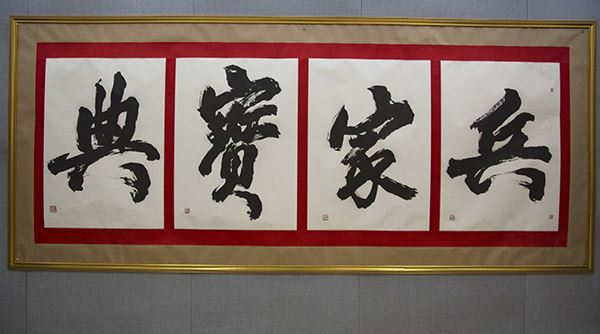 兵家寶典